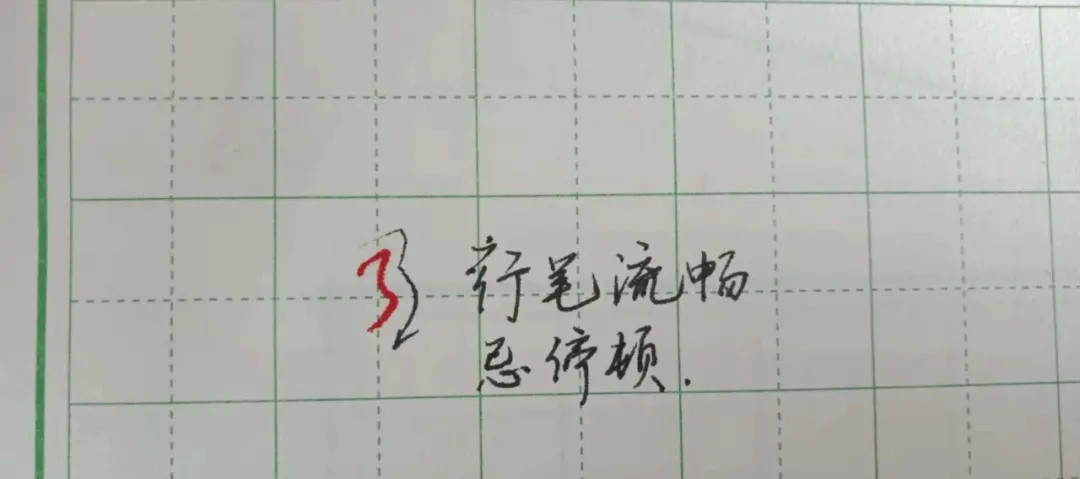 行笔流畅
忌停顿.